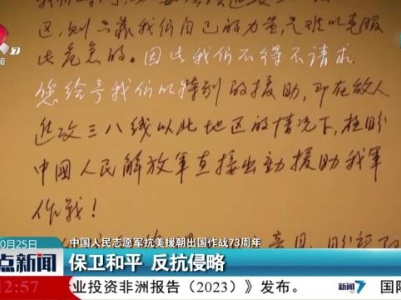 区,则只靠我们自己的力量,是难以克服
此危急的。因此我们不得不请求
您给予我们以特别的援助,即在敌人
进攻三八线以北地区的情况下,极盼
中国人民解放军直接出动援助我军
作战!
0月25日
中国人民志愿军抗美援朝出国作战73周年
点新闻
保卫和平 反抗侵略
12:57
业投资非洲报告(2023)》发布。
新闻
国际